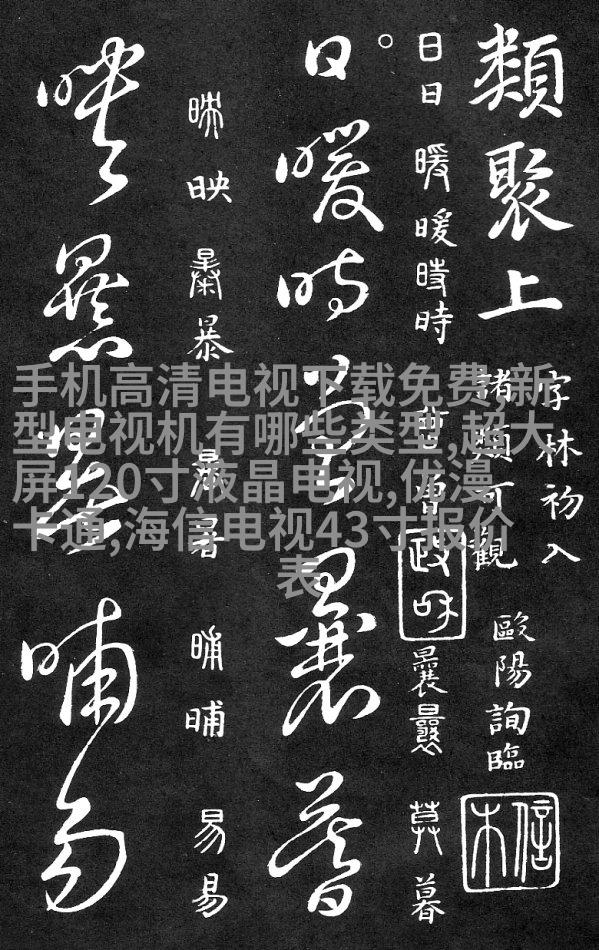 類聚上
字林初入
諸類可觀
歐陽詢臨
日日
暖暖時時
曹曹
政和
莫暮
日暖時曹曩暮
映
暴
暑
晡晡
易易
映暴暑晡易
手机高清电视下载免费,新
型电视机有哪些类型,超大
屏120寸液晶电视,优漫
卡通,海信电视43寸报价
表